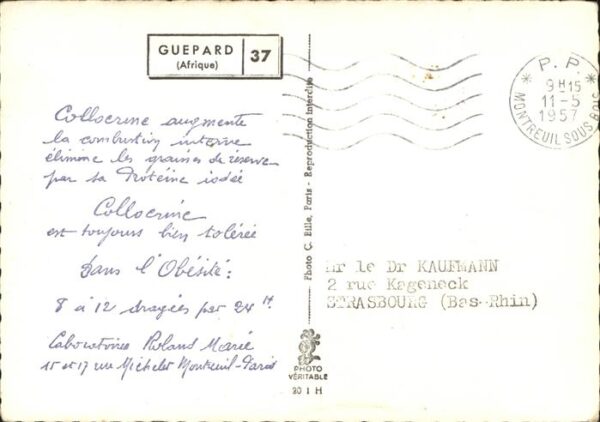 GUEPARD
(Afrique)
37
Collocrine augmente
la combustion interne
élimine les graisses de réserve
par sa Protéine iodée
Collocrine
est toujours bien tolérée
Dans l'Obésité:
8 à 12 dragées par 24 H
Laboratoires Roland Marie
15 et 17 rue Michelet Montreuil-Paris
Photo C. Bille, Paris - Reproduction interdite
PHOTO
VÉRITABLE
20 1 H
* P. P. *
9H15
11-5
1957
MONTREUIL SOUS BOIS
Mr le Dr KAUFMANN
2 rue Kageneck
STRASBOURG (Bas-Rhin)